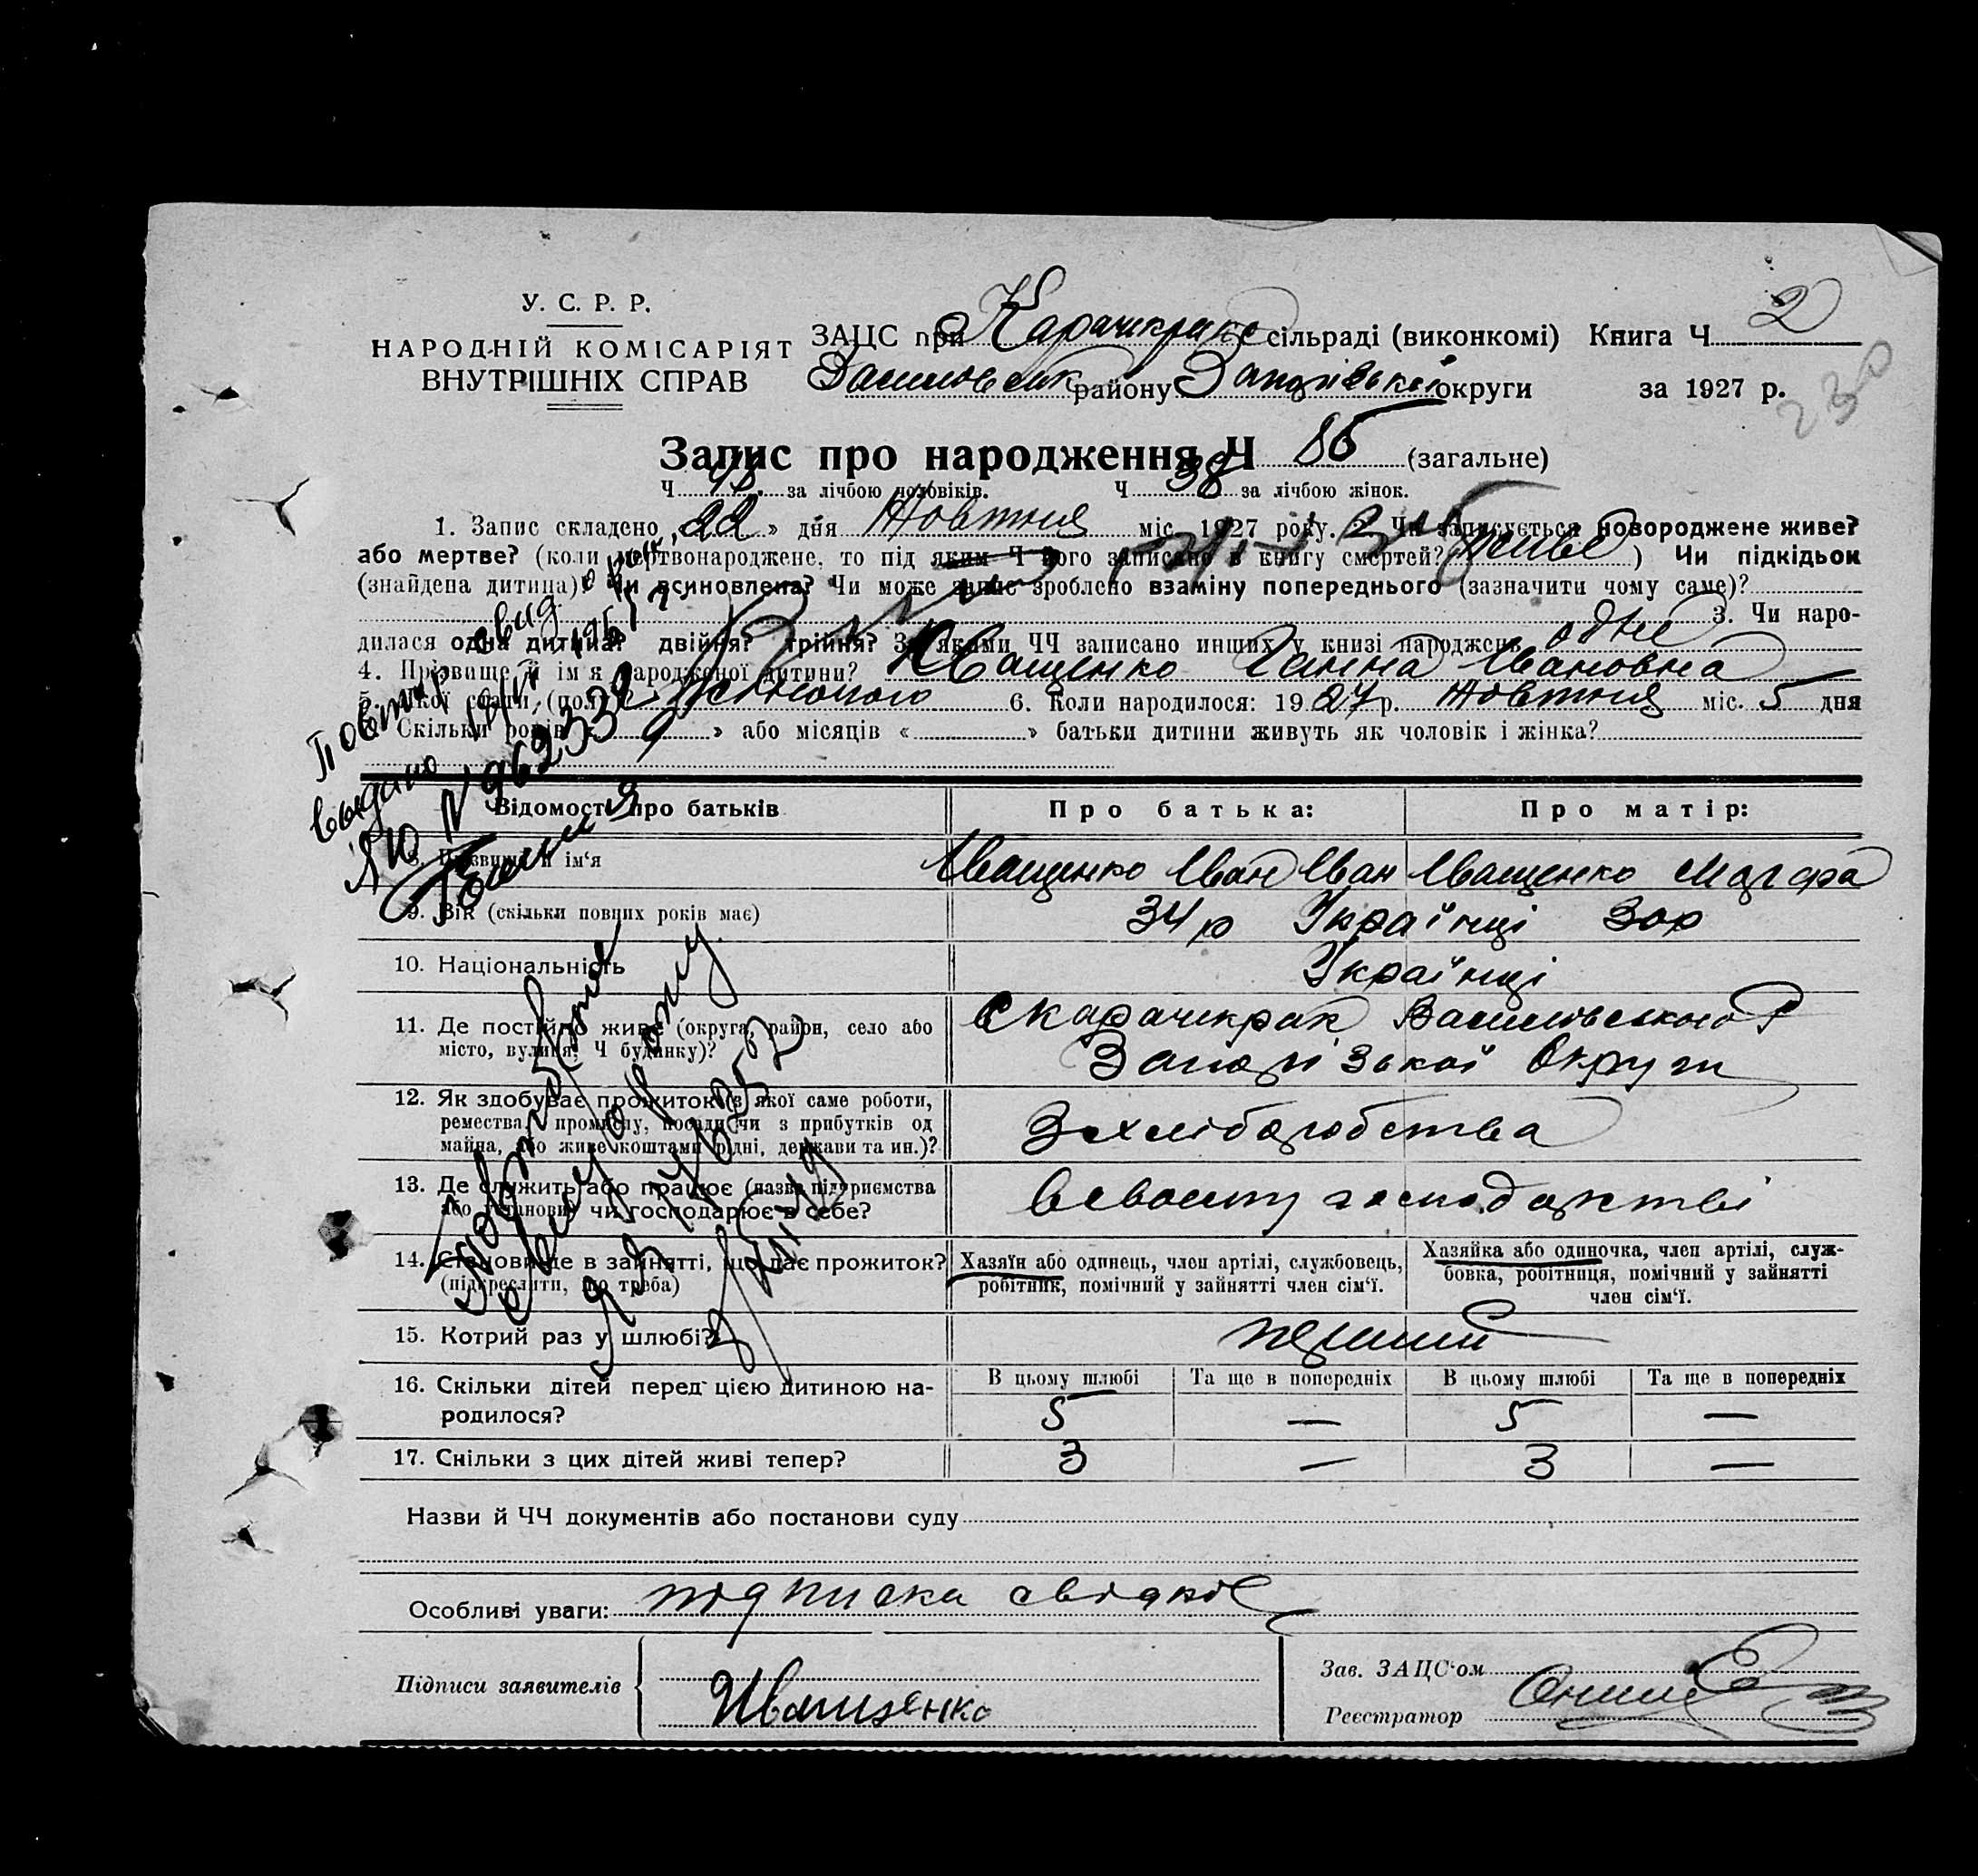 У. С. Р. Р.
НАРОДНІЙ КОМІСАРІЯТ
ВНУТРІШНІХ СПРАВ
ЗАЦС при Карачекракс сільраді (виконкомі) Книга Ч 2
Василівськ району Запорізької округи за 1927 р.
230
Запис про народження Ч 85 (загальне)
Ч за лічбою чоловіків. Ч 38 за лічбою жінок.
1. Запис складено « 22 » дня Жовтня міс. 1927 року. 2. Чи записується новороджене живе?
або мертве? (коли мертвонароджене, то під яким Ч його записано в книгу смертей? живе ) Чи підкідьок
(знайдена дитина)? Чи всиновлена? Чи може запис зроблено взаміну попереднього (зазначити чому саме)?
3. Чи наро-
дилася одна дитина? двійня? трійня? За якими ЧЧ записано инших у книзі народжень одне
4. Прізвище й ім'я народженої дитини? Іващенко Ганна Івановна
5. Якої статі (полу) жіночого 6. Коли народилося: 1927 р. Жовтня міс. 5 дня
7. Скільки років « 9 » або місяців « » батьки дитини живуть як чоловік і жінка?
Повтор. свид.
выдано
ЯЮ № 962332
Відомості про батьків Про батька: Про матір:
8. Прізвище й ім'я Іващенко Іван Іван Іващенко Марфа
9. Вік (скільки повних років має) 34 р Українці 30р
10. Національність Українці
11. Де постійно живе (округа, район, село або
місто, вулиця, Ч будинку)?
с Карачекрак Василівського Р
Запорізької Округи
12. Як здобуває прожиток (з якої саме роботи,
ремества, промислу, посади чи з прибутків од
майна, або живе коштами рідні, держави та ин.)?
З хліборобства
13. Де служить або працює (назва підприємства
або установи) чи господарює в себе?
в своєму господарстві
14. Становище в зайнятті, що дає прожиток?
(підкреслити, що треба)
Хазяїн або одинець, член артілі, службовець,
робітник, помічний у зайнятті член сім'ї.
Хазяйка або одиночка, член артілі, служ-
бовка, робітниця, помічний у зайнятті
член сім'ї.
15. Котрий раз у шлюбі? перший
16. Скільки дітей перед цією дитиною на-
родилося?
В цьому шлюбі Та ще в попередніх В цьому шлюбі Та ще в попередніх
5 — 5 —
17. Скільки з цих дітей живі тепер? 3 — 3 —
Назви й ЧЧ документів або постанови суду
Особливі уваги: підписка свідків
Підписи заявителів
Иващенко
Зав. ЗАЦС'ом
Реєстратор